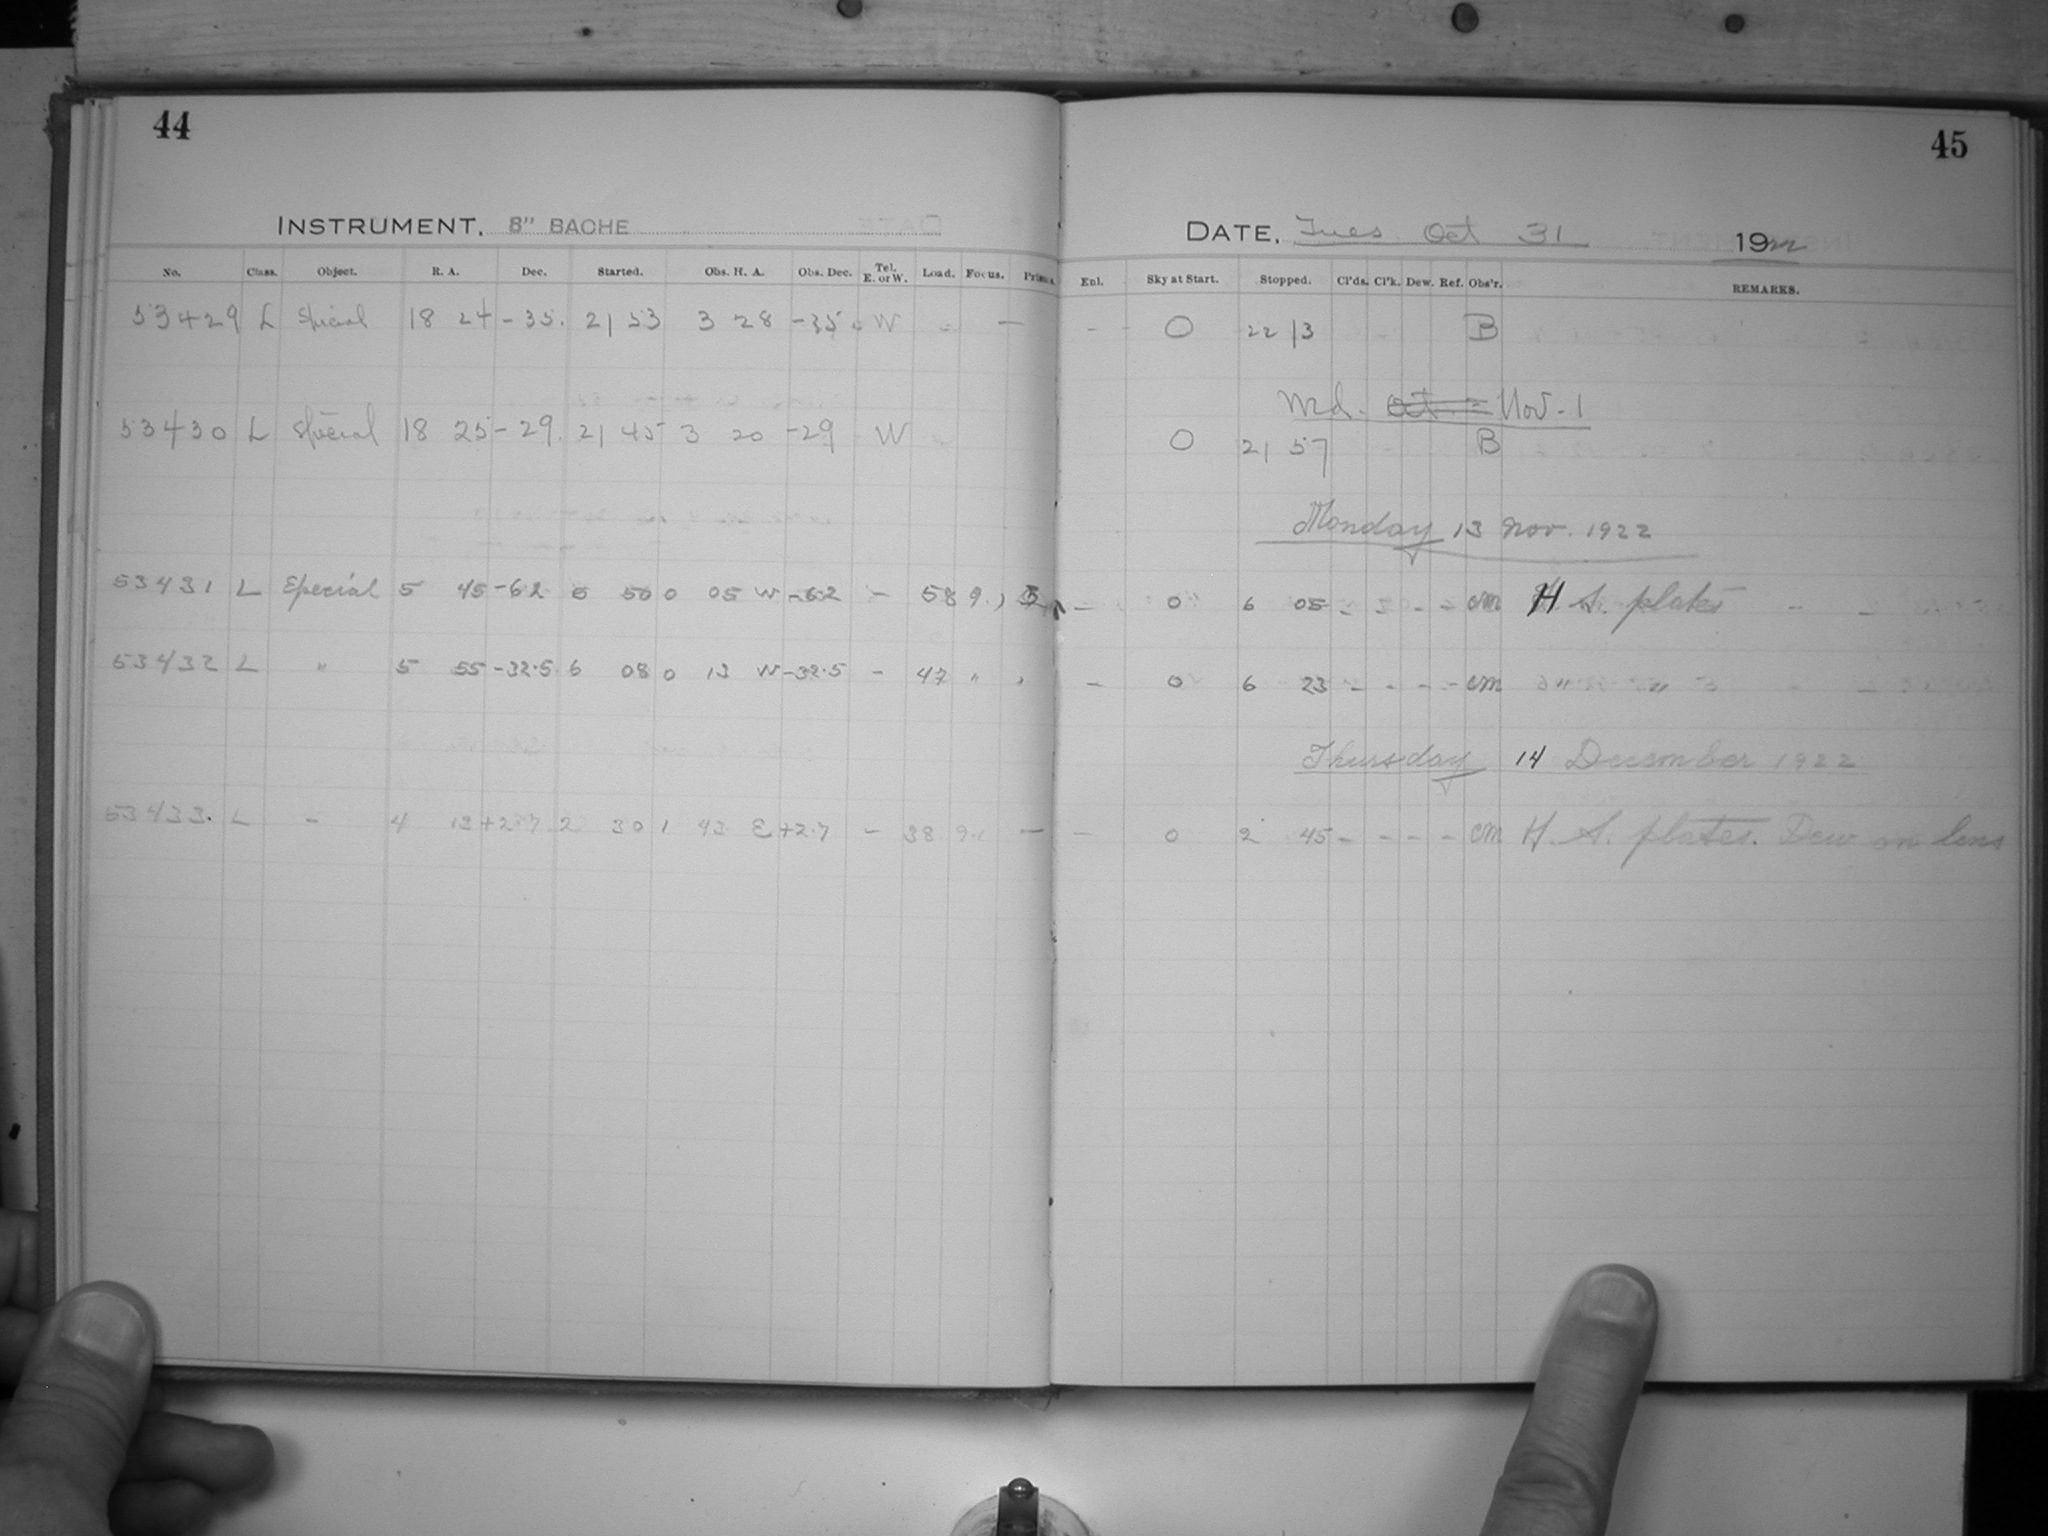 44
INSTRUMENT, 8" BACHE
No. Class. Object. R. A. Dec. Started. Obs. H. A. Obs. Dec. Tel. E. or W. Load. Focus.
53429 L Special 18 24 -35. 21 53 3 28 -35. W —
53430 L Special 18 25 -29. 21 45 3 20 -29 W
53431 L Special 5 45 -62 5 50 0 05 W -62 - 58 9.,
53432 L " 5 55 -32.5 6 08 0 13 W -32.5 - 47 "
53433. L - 4 13 +2.7 2 30 1 43 E +2.7 - 38 9.1 —
45
DATE, Tues Oct 31 1922
Enl. Sky at Start. Stopped. Cl'ds. Cl'k. Dew. Ref. Obs'r. REMARKS.
- 0 22 13 B
Wed. Oct. Nov. 1
0 21 57 B
Monday 13 Nov. 1922
- 0 6 05 - - - - cm H. S. plates
- 0 6 23 - - - - cm " "
Thursday 14 December 1922
- 0 2 45 - - - - cm H. S. plates. Dew on lens